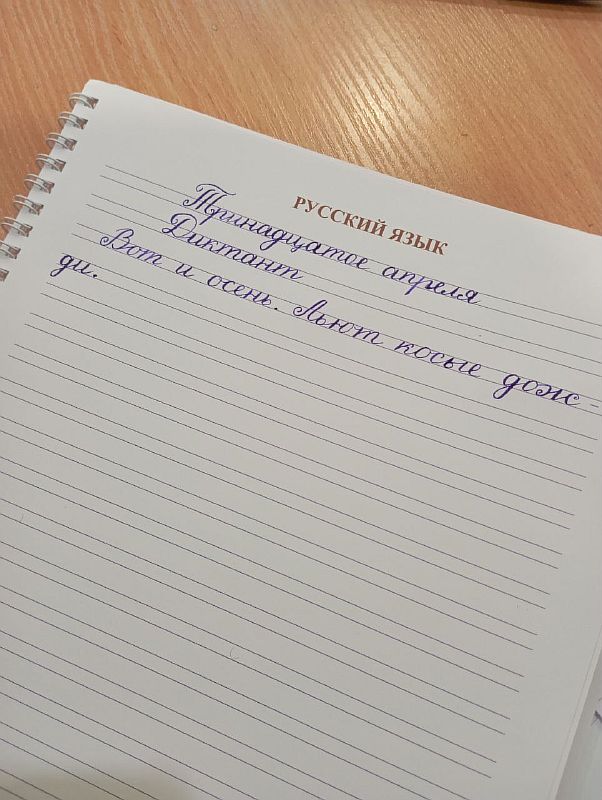 РУССКИЙ ЯЗЫК
Тринадцатое апреля
Диктант
Вот и осень. Льют косые дож-
ди.